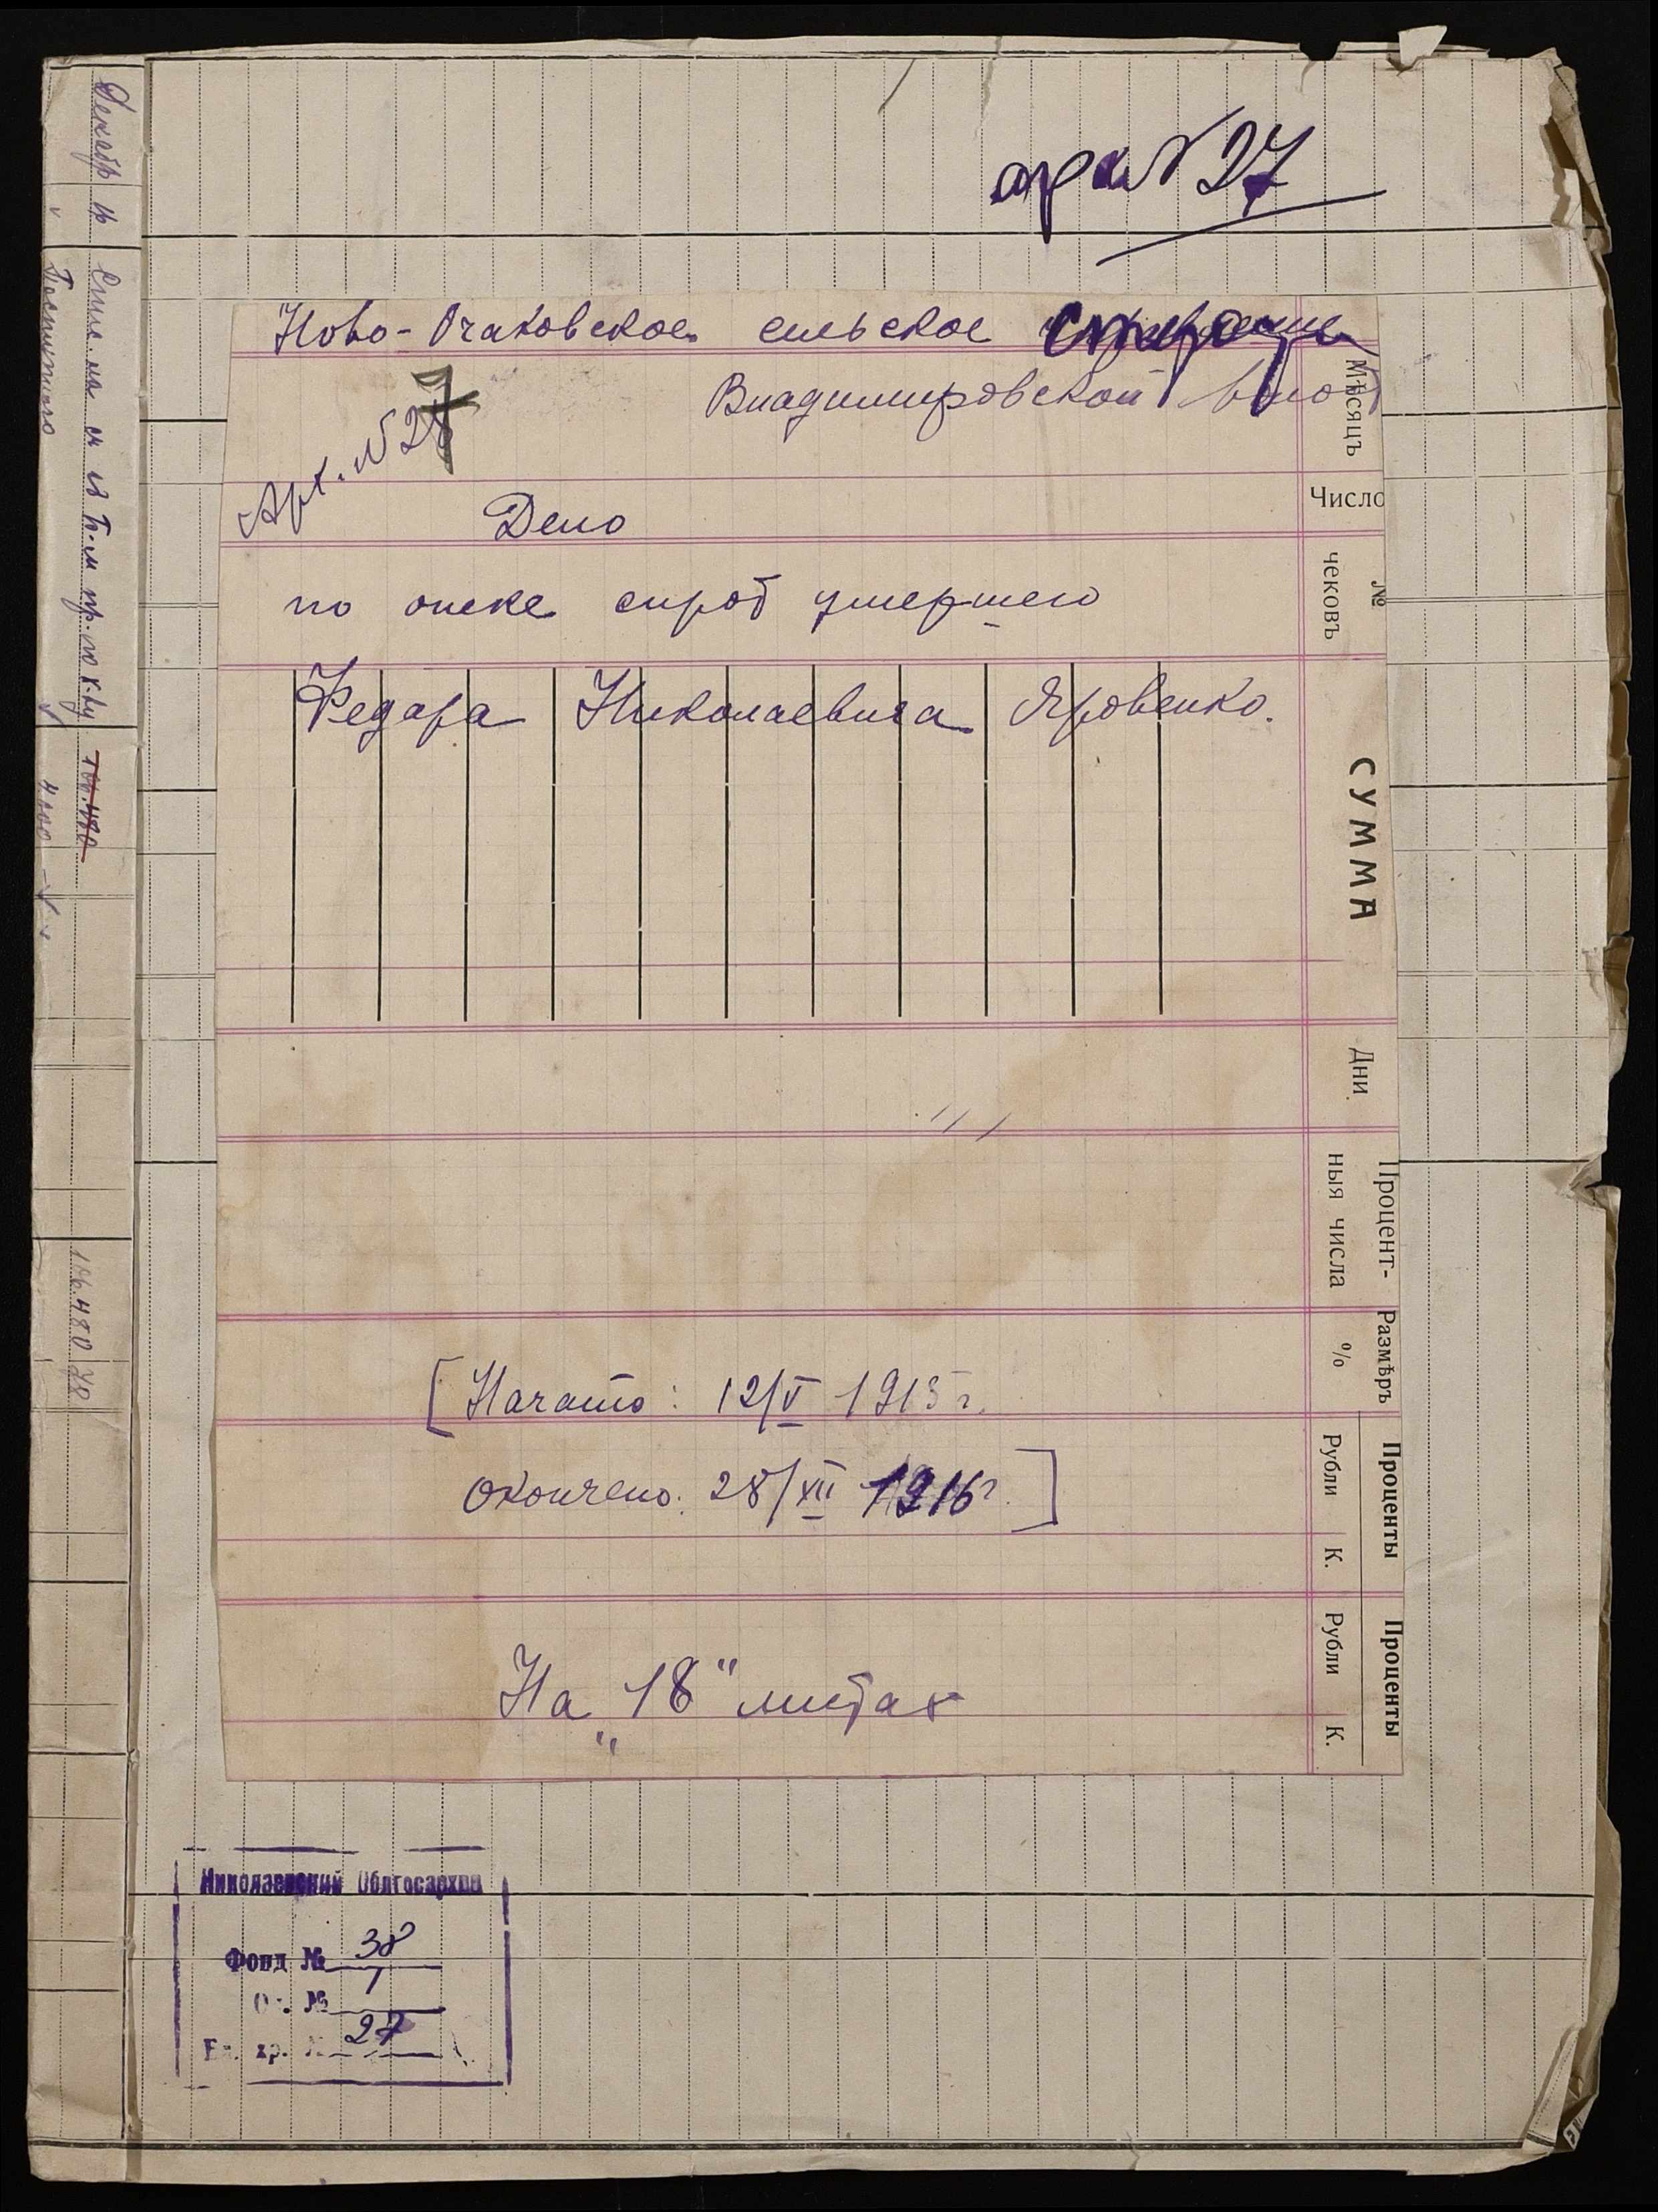 арх N 27
Ново-Очаковское сельское
Владимировской вол
Арх. N 27
Дело
по опеке сирот умершего
Федора Николаевича Яровенко.
[Начато: 12/V 1915 г.
Окончено: 28/XII 1916 г.]
На "18" листах
Мѣсяцъ
Число
№ чековъ
СУММА
Дни
Процент-
ныя числа
Размѣръ
%
Проценты
Рубли К.
Проценты
Рубли К.
Николаевский Облгосархив
Фонд № 38
Оп. № 1
Ед. хр. № 27
Декабр
106.480
106.480 78